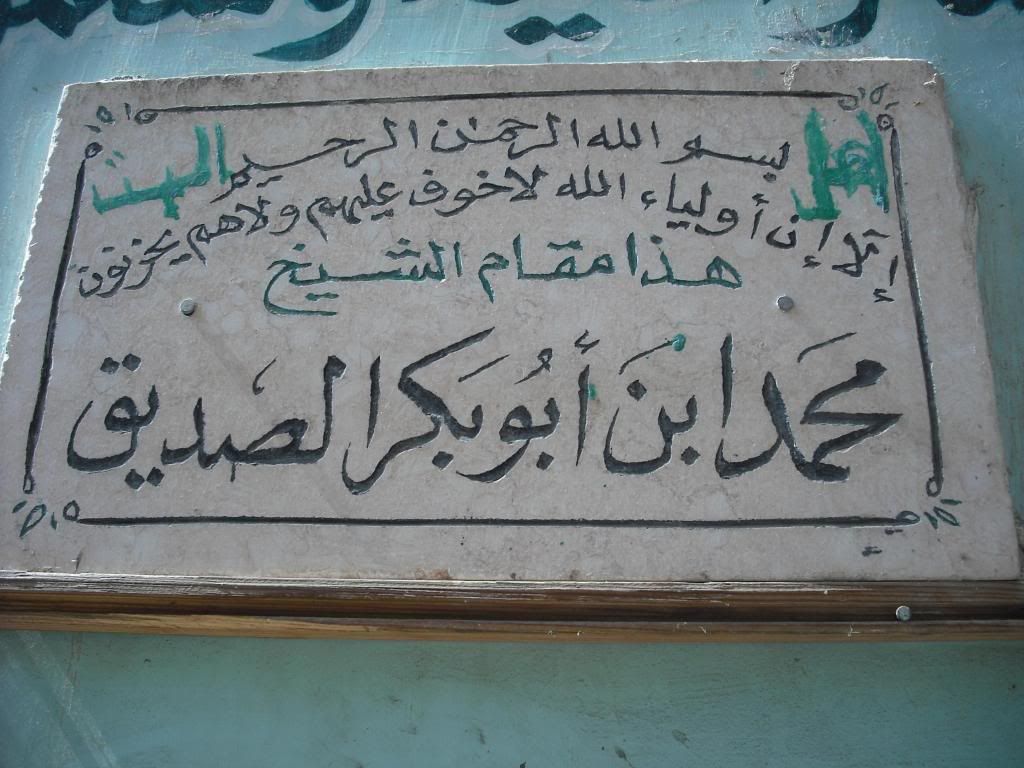 بسم الله الرحمٰن الرحيم
إلا إن أولياء الله لا خوف عليهم ولا هم يحزنون
هذا مقام الشيخ
محمَد ابنَ أبُو بَكر الصَديق